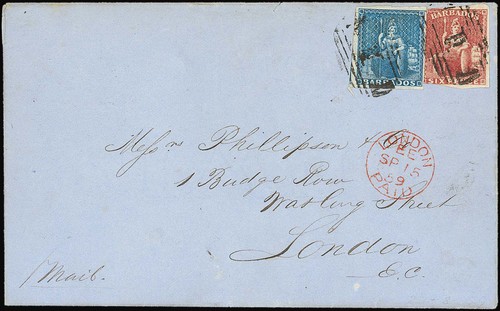 BARBADOS
BARBADOS
SIX
Messrs Phillipson &
1 Budge Row
Watling Street
London
E.C.
LONDON
EE
SP 15
59
PAID
/Mail.